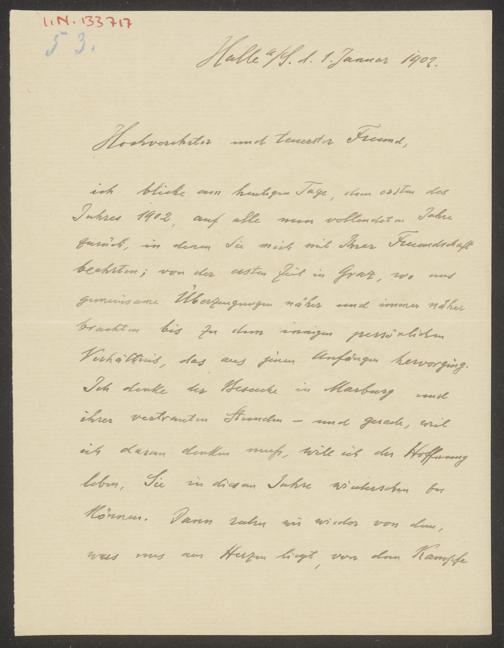 I.N. 133717
53.
Halle a/S. d. 1. Januar 1902.
Hochverehrter und teuerster Freund,
ich blicke am heutigen Tage, dem ersten des
Jahres 1902, auf alle nun vollendeten Jahre
zurück, in denen Sie mich mit Ihrer Freundschaft
beehrten; von der ersten Zeit in Graz, wo uns
gemeinsame Überzeugungen näher und immer näher
brachten bis zu dem innigen persönlichen
Verhältnis, das aus jenen Anfängen hervorging.
Ich denke der Besuche in Marburg und
ihrer vertrauten Stunden – und gerade, weil
ich daran denken muß, will ich der Hoffnung
leben, Sie in diesem Jahre wiedersehen zu
können. Dann reden wir wieder von dem,
was uns am Herzen liegt, von dem Kampfe